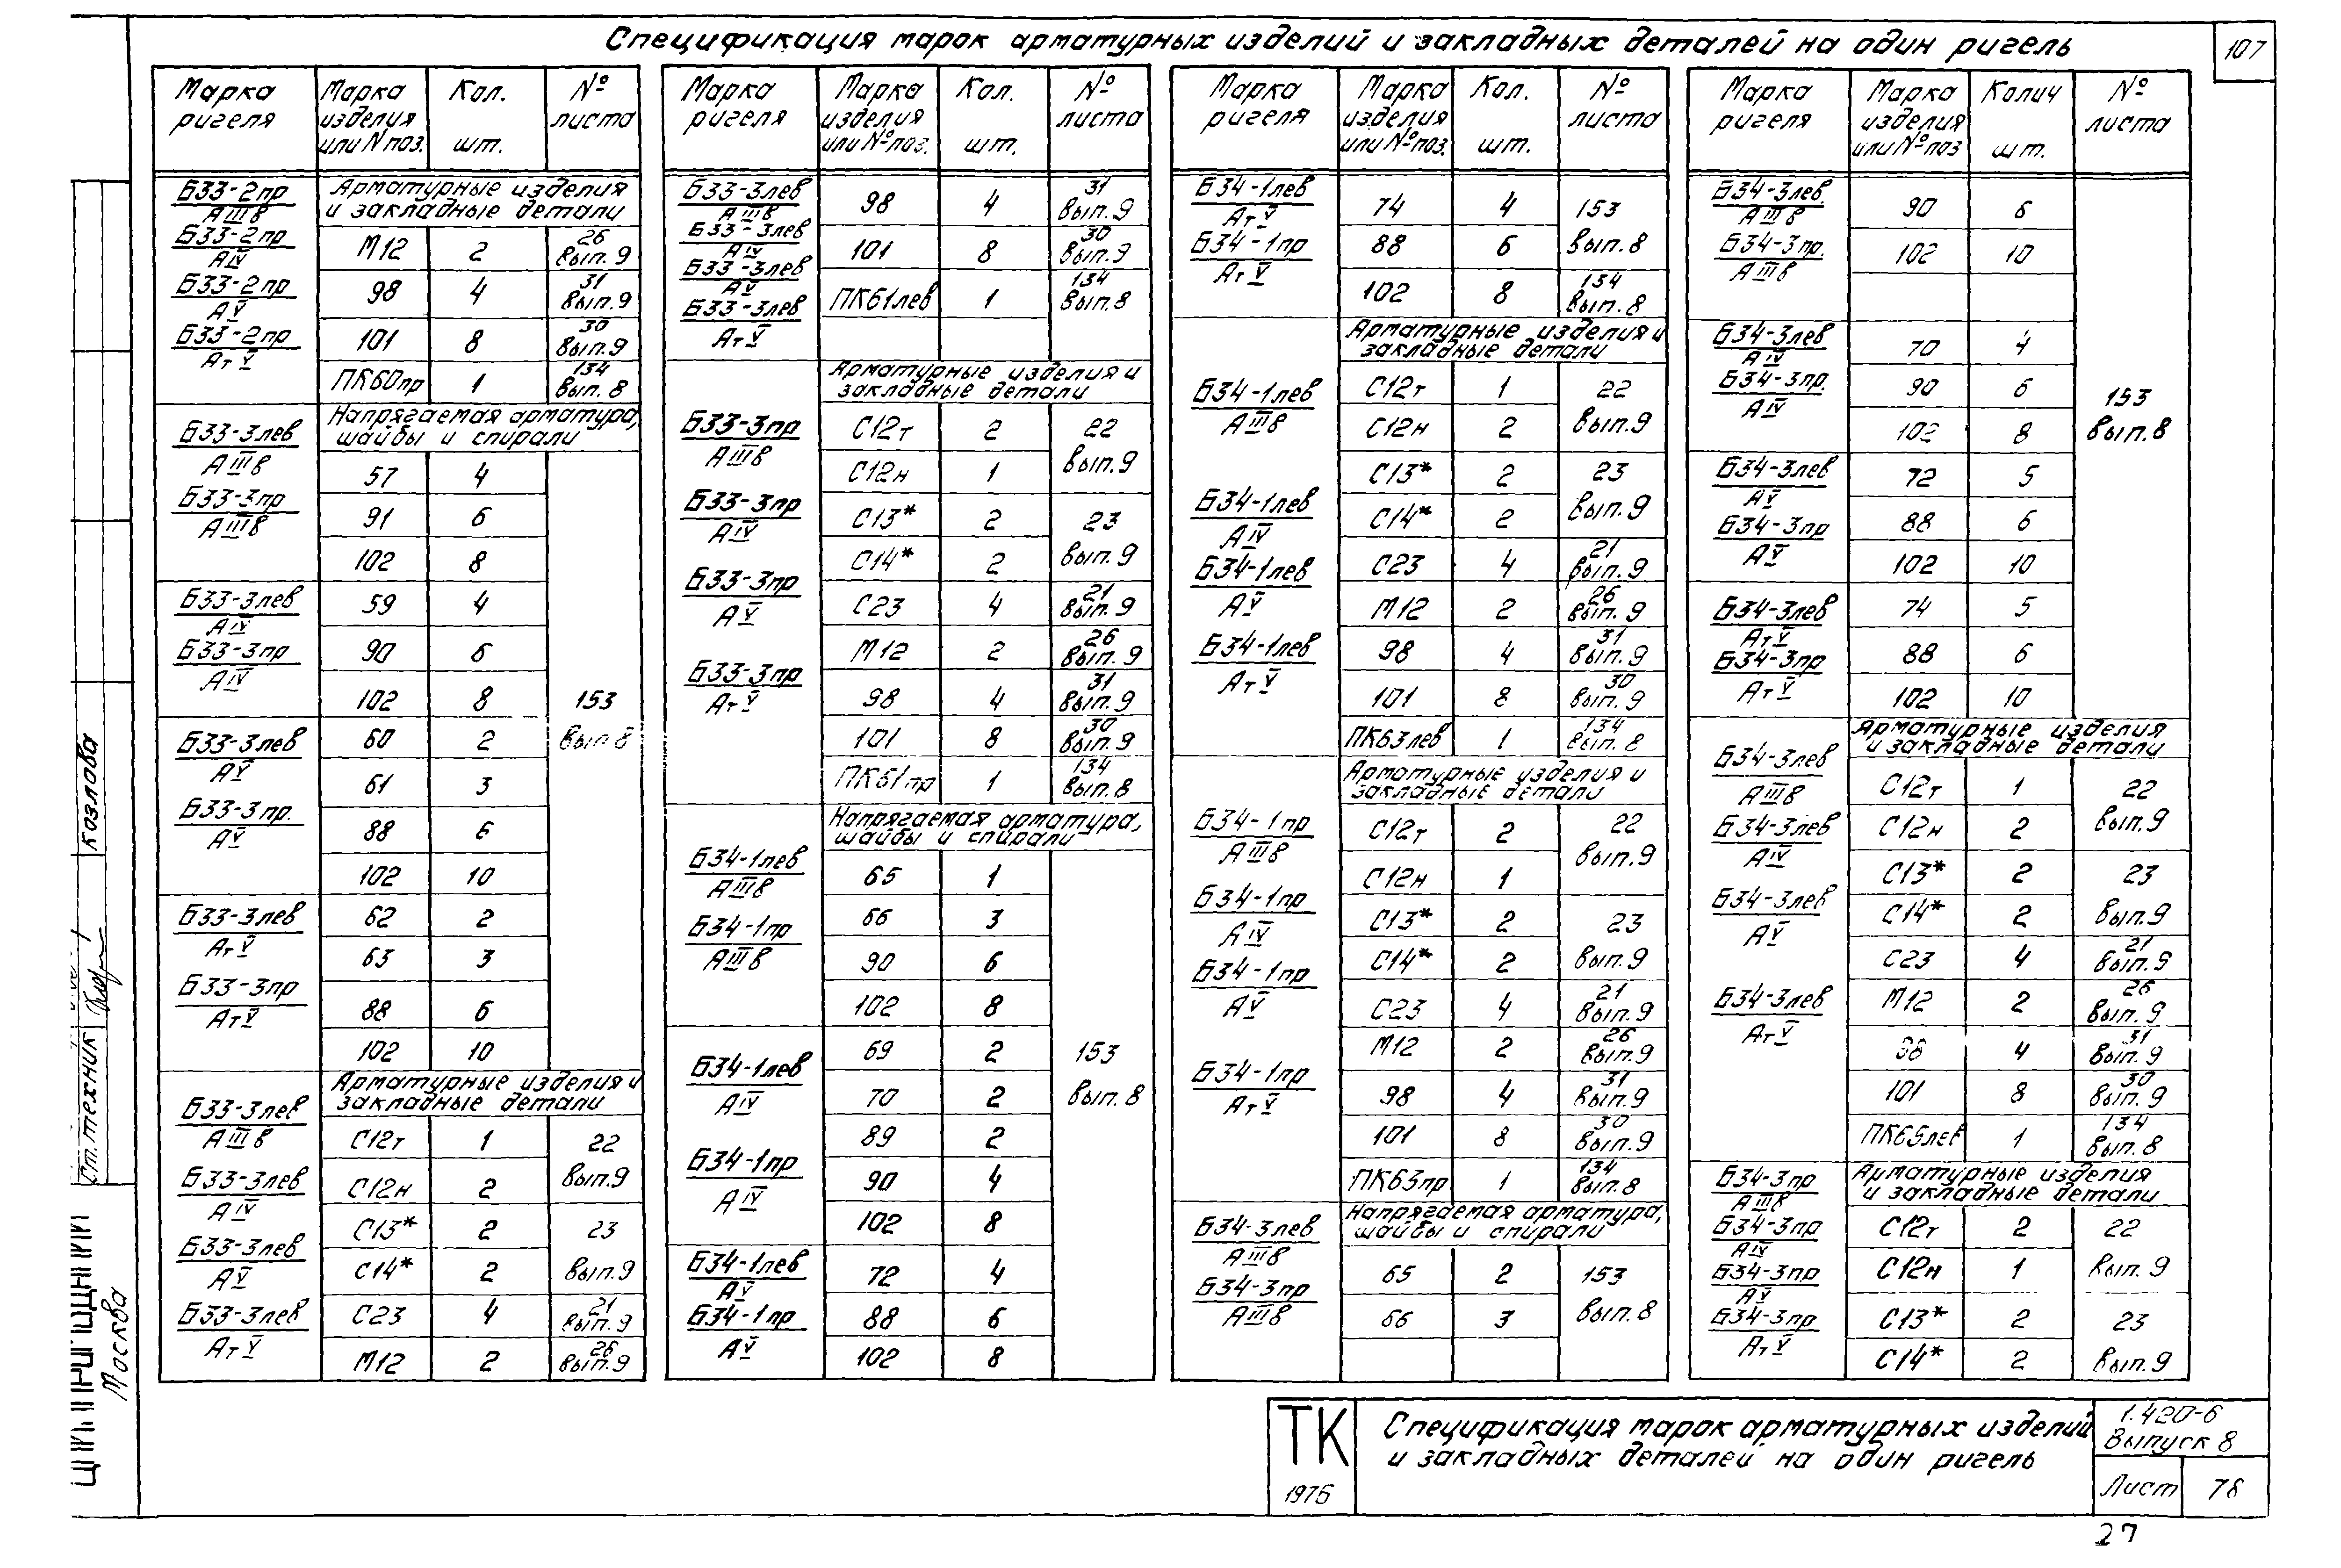 Спецификация марок арматурных изделий и закладных деталей на один ригель
107
Марка ригеля | Марка изделия или N поз. | Кол. шт. | № листа
Б33-2пр АIIIв | Арматурные изделия и закладные детали
Б33-2пр АIV | М12 | 2 | 26 вып. 9
Б33-2пр АV | 98 | 4 | 31 вып. 9
Б33-2пр АтV | 101 | 8 | 30 вып. 9
ПК60пр | 1 | 134 вып. 8
Напрягаемая арматура, шайбы и спирали
Б33-3лев АIIIв
Б33-3пр АIIIв
57 | 4
91 | 6
102 | 8
Б33-3лев АIV
Б33-3пр АIV
59 | 4
90 | 6
102 | 8
153 вып. 8
Б33-3лев АV
Б33-3пр. АV
60 | 2
61 | 3
88 | 6
102 | 10
Б33-3лев АтV
Б33-3пр АтV
62 | 2
63 | 3
88 | 6
102 | 10
Арматурные изделия и закладные детали
Б33-3лев АIIIв
Б33-3лев АIV
Б33-3лев АV
Б33-3лев АтV
С12т | 1 | 22 вып. 9
С12н | 2
С13* | 2 | 23 вып. 9
С14* | 2
С23 | 4 | 21 вып. 9
М12 | 2 | 26 вып. 9
Марка ригеля | Марка изделия или № поз. | Кол. шт. | № листа
Б33-3лев АIIIв
Б33-3лев АIV
Б33-3лев АV
Б33-3лев АтV
98 | 4 | 31 вып. 9
101 | 8 | 30 вып. 9
ПК61лев | 1 | 134 вып. 8
Арматурные изделия и закладные детали
Б33-3пр АIIIв
Б33-3пр АIV
Б33-3пр АV
Б33-3пр АтV
С12т | 2 | 22 вып. 9
С12н | 1
С13* | 2 | 23 вып. 9
С14* | 2
С23 | 4 | 21 вып. 9
М12 | 2 | 26 вып. 9
98 | 4 | 31 вып. 9
101 | 8 | 30 вып. 9
ПК61пр | 1 | 134 вып. 8
Напрягаемая арматура, шайбы и спирали
Б34-1лев АIIIв
Б34-1пр АIIIв
65 | 1
66 | 3
90 | 6
102 | 8
Б34-1лев АIV
Б34-1пр АIV
69 | 2 | 153 вып. 8
70 | 2
89 | 2
90 | 4
102 | 8
Б34-1лев АV
Б34-1пр АV
72 | 4
88 | 6
102 | 8
Марка ригеля | Марка изделия или № поз. | Кол. шт. | № листа
Б34-1лев АтV
Б34-1пр АтV
74 | 4 | 153 вып. 8
88 | 6
102 | 8 | 134 вып. 8
Арматурные изделия и закладные детали
Б34-1лев АIIIв
Б34-1лев АIV
Б34-1лев АV
Б34-1лев АтV
С12т | 1 | 22 вып. 9
С12н | 2
С13* | 2 | 23 вып. 9
С14* | 2
С23 | 4 | 21 вып. 9
М12 | 2 | 26 вып. 9
98 | 4 | 31 вып. 9
101 | 8 | 30 вып. 9
ПК63лев | 1 | 134 вып. 8
Арматурные изделия и закладные детали
Б34-1пр АIIIв
Б34-1пр АIV
Б34-1пр АV
Б34-1пр АтV
С12т | 2 | 22 вып. 9
С12н | 1
С13* | 2 | 23 вып. 9
С14* | 2
С23 | 4 | 21 вып. 9
М12 | 2 | 26 вып. 9
98 | 4 | 31 вып. 9
101 | 8 | 30 вып. 9
ПК63пр | 1 | 134 вып. 8
Напрягаемая арматура, шайбы и спирали
Б34-3лев АIIIв
Б34-3пр АIIIв
65 | 2 | 153 вып. 8
66 | 3
Марка ригеля | Марка изделия или № поз | Колич шт. | № листа
Б34-3лев. АIIIв
Б34-3пр. АIIIв
90 | 6
102 | 10
Б34-3лев АIV
Б34-3пр. АIV
70 | 4
90 | 6
102 | 8
153 вып. 8
Б34-3лев АV
Б34-3пр АV
72 | 5
88 | 6
102 | 10
Б34-3лев АтV
Б34-3пр АтV
74 | 5
88 | 6
102 | 10
Арматурные изделия и закладные детали
Б34-3лев АIIIв
Б34-3лев АIV
Б34-3лев АV
Б34-3лев АтV
С12т | 1 | 22 вып. 9
С12н | 2
С13* | 2 | 23 вып. 9
С14* | 2
С23 | 4 | 21 вып. 9
М12 | 2 | 26 вып. 9
98 | 4 | 31 вып. 9
101 | 8 | 30 вып. 9
ПК65лев | 1 | 134 вып. 8
Арматурные изделия и закладные детали
Б34-3пр АIIIв
Б34-3пр АIV
Б34-3пр АV
Б34-3пр АтV
С12т | 2 | 22 вып. 9
С12н | 1
С13* | 2 | 23 вып. 9
С14* | 2
Козлова
Ст. техник
Москва
ТК
1976
Спецификация марок арматурных изделий
и закладных деталей на один ригель
1.420-6
Выпуск 8
Лист 78
27